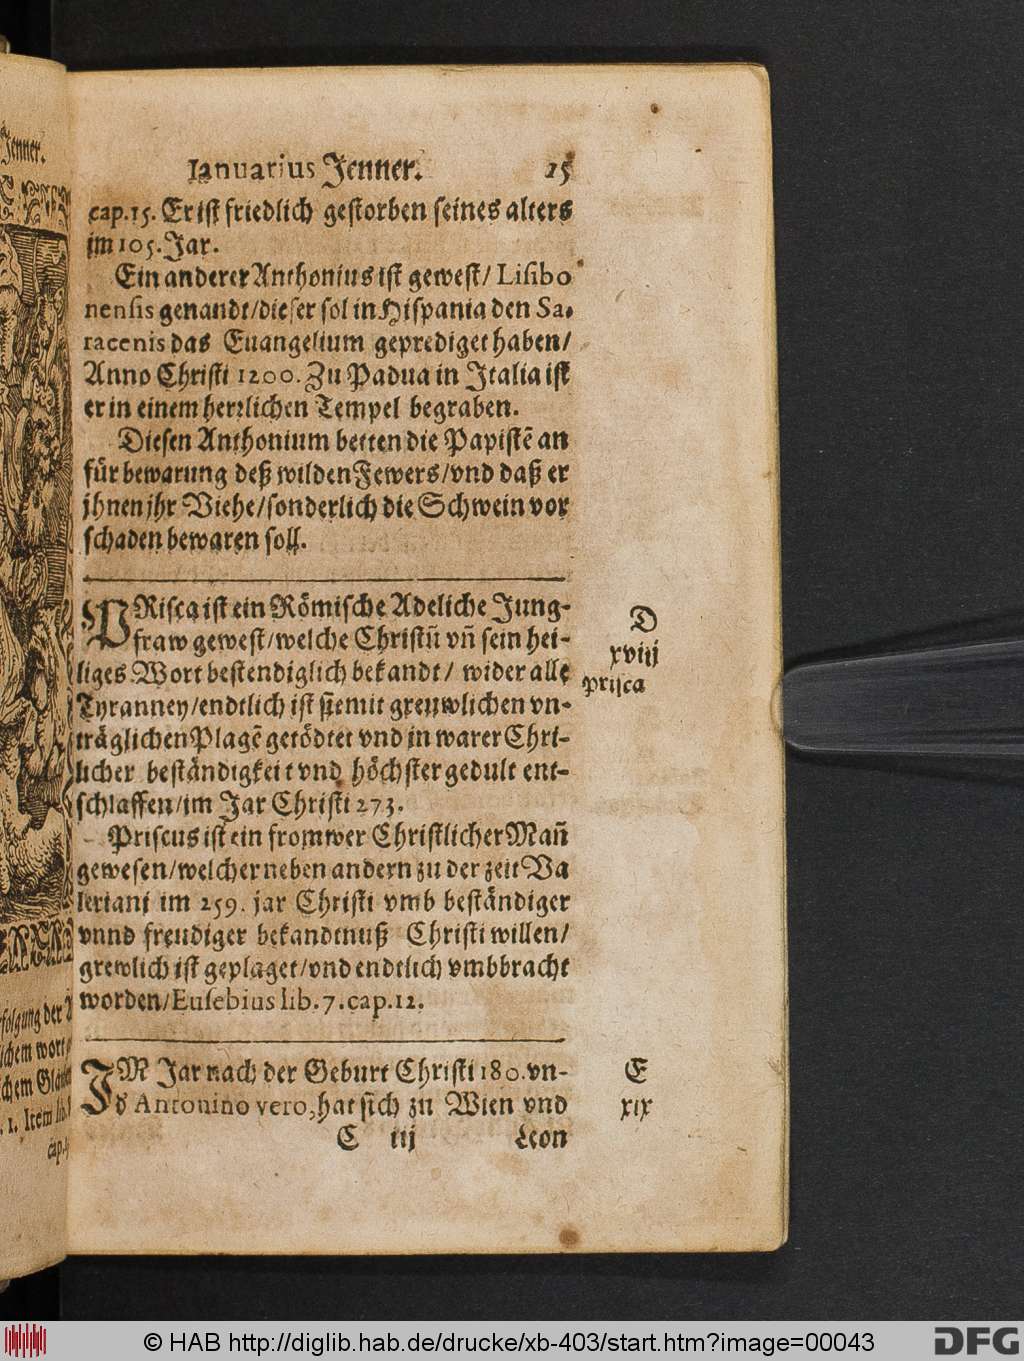 Ianuarius Jenner. 15
cap.15. Er ist friedlich gestorben seines alters
im 105. Jar.
Ein anderer Anthonius ist gewest/ Lisibo
nensis genandt/dieser sol in Hispania den Sa-
racenis das Euangelium geprediget haben/
Anno Christi 1200. Zu Padua in Italia ist
er in einem herrlichen Tempel begraben.
Diesen Anthonium betten die Papistē an
für bewarung deß wilden Fewers/vnd daß er
jhnen jhr Viehe/sonderlich die Schwein vor
schaden bewaren soll.
PRisca ist ein Römische Adeliche Jung-
fraw gewest/welche Christū vñ sein hei-
liges Wort bestendiglich bekandt/ wider alle
Tyranney/endtlich ist sie mit grewlichen vn-
träglichen Plagē getödtet vnd in warer Chri-
licher beständigkeit vnd höchster gedult ent-
schlaffen/im Jar Christi 273.
D
xviij
Prisca
Priscus ist ein fromwer Christlicher Mañ
gewesen/welcher neben andern zu der zeit Va
leriani im 259. jar Christi vmb beständiger
vnnd freudiger bekandtnuß Christi willen/
grewlich ist geplaget/vnd endtlich vmbbracht
worden/Eusebius lib.7.cap.12.
IM Jar nach der Geburt Christi 180. vn-
d Antonino vero, hat sich zu Wien vnd
E
xix
C iij Leon
Jenner.
folgung der
ichem wort
chem
1. Item lib.
cap.
© HAB http://diglib.hab.de/drucke/xb-403/start.htm?image=00043
DFG